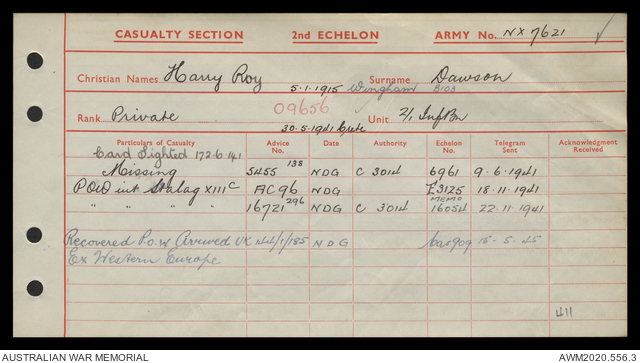 CASUALTY SECTION 2nd ECHELON ARMY No. NX 7621
Christian Names Harry Roy Surname Dawson
5.1.1915 Wingham B103
Rank Private 09656 Unit 2/1 Inf Bn
30.5.1941 Crete
Particulars of Casualty Advice No. Date Authority Echelon No. Telegram Sent Acknowledgment Received
Card Sighted 172.6.141
Missing 5455 138 NDG C 3014 6961 9.6.1941
POW int Stalag XIII C AC96 NDG E3125 18.11.1941
" " " " 16721 296 NDG C 3014 MEMO 16054 22.11.1941
Recovered P.o.W Arrived UK /1/185 NDG Cas909 15.5.45
Ex Western Europe
411
AUSTRALIAN WAR MEMORIAL AWM2020.556.3